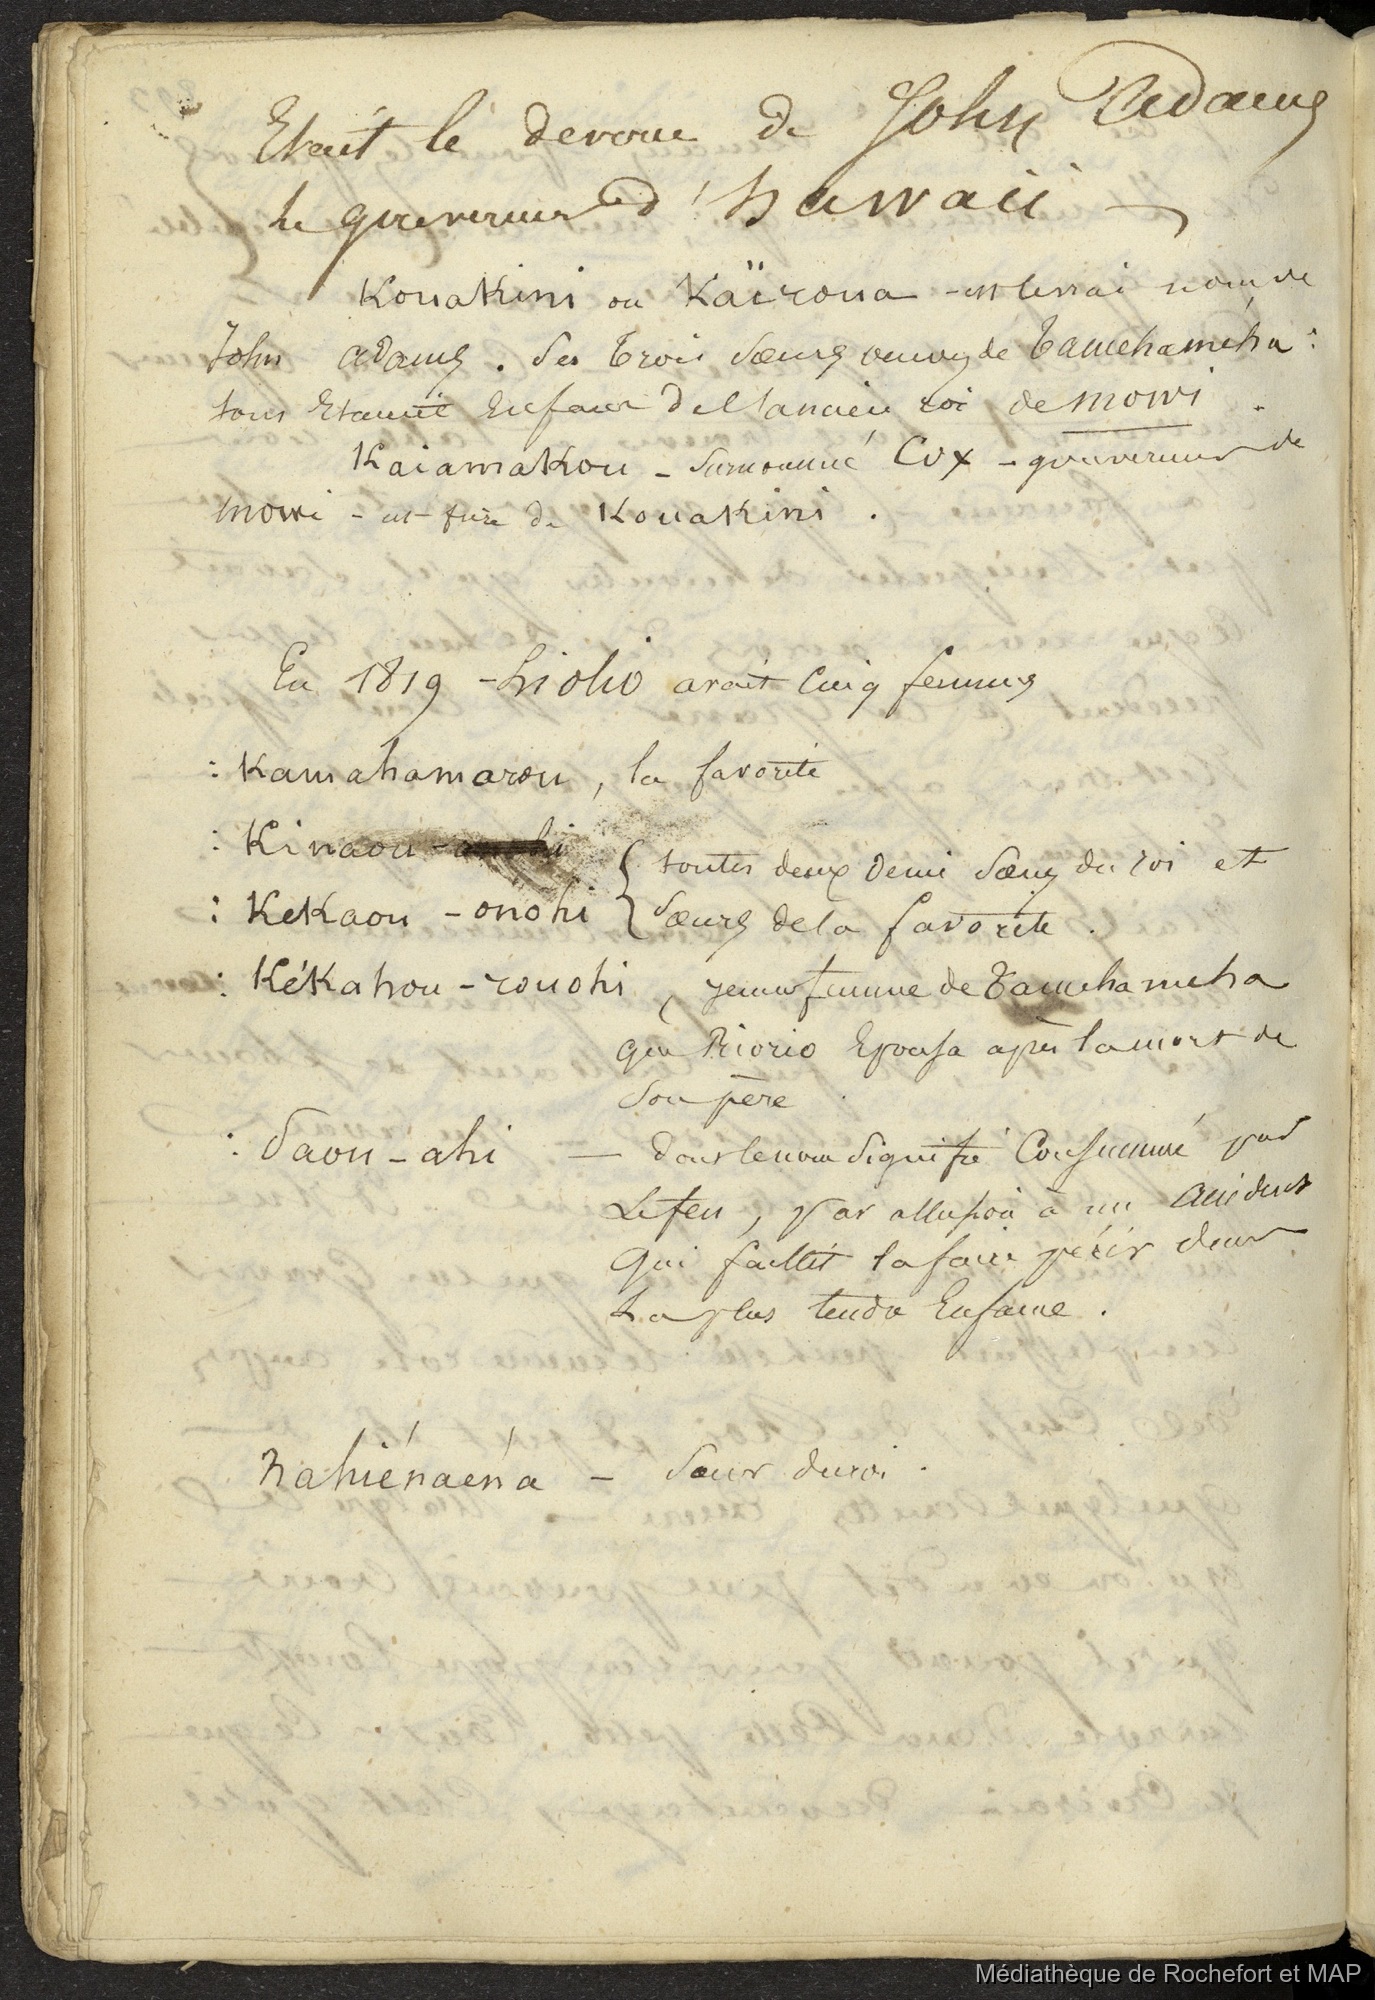 Etait le devoué de John Adams
le gouverneur d'hawaii —
Kouakini ou Kaïroua - est le vrai nom de
John adams. Ses trois sœurs veuves de Tamehameha :
tous Etaient Enfans de l'ancien roi de mowi .
Kaiamakou - surnommé Cox - gouverneur de
mowi - est frere de Kouakini .
En 1819 - Liolio avait Cinq femmes
: Kamahamarou, la favorite
: Kinaou -
: Kekaou - onohi { toutes deux demi sœurs du roi et
sœurs de la favorite .
: Kékahou - rouohi, jeune femme de Tamehameha
que Riorio Epousa après la mort de
son père .
: Paou - ahi — dont le nom signifie Consummé par
Le feu, par allusion à un accident
qui faillit la faire périr dans
La plus tendre Enfance .
Nahiénaéna - sœur du roi .
Médiathèque de Rochefort et MAP